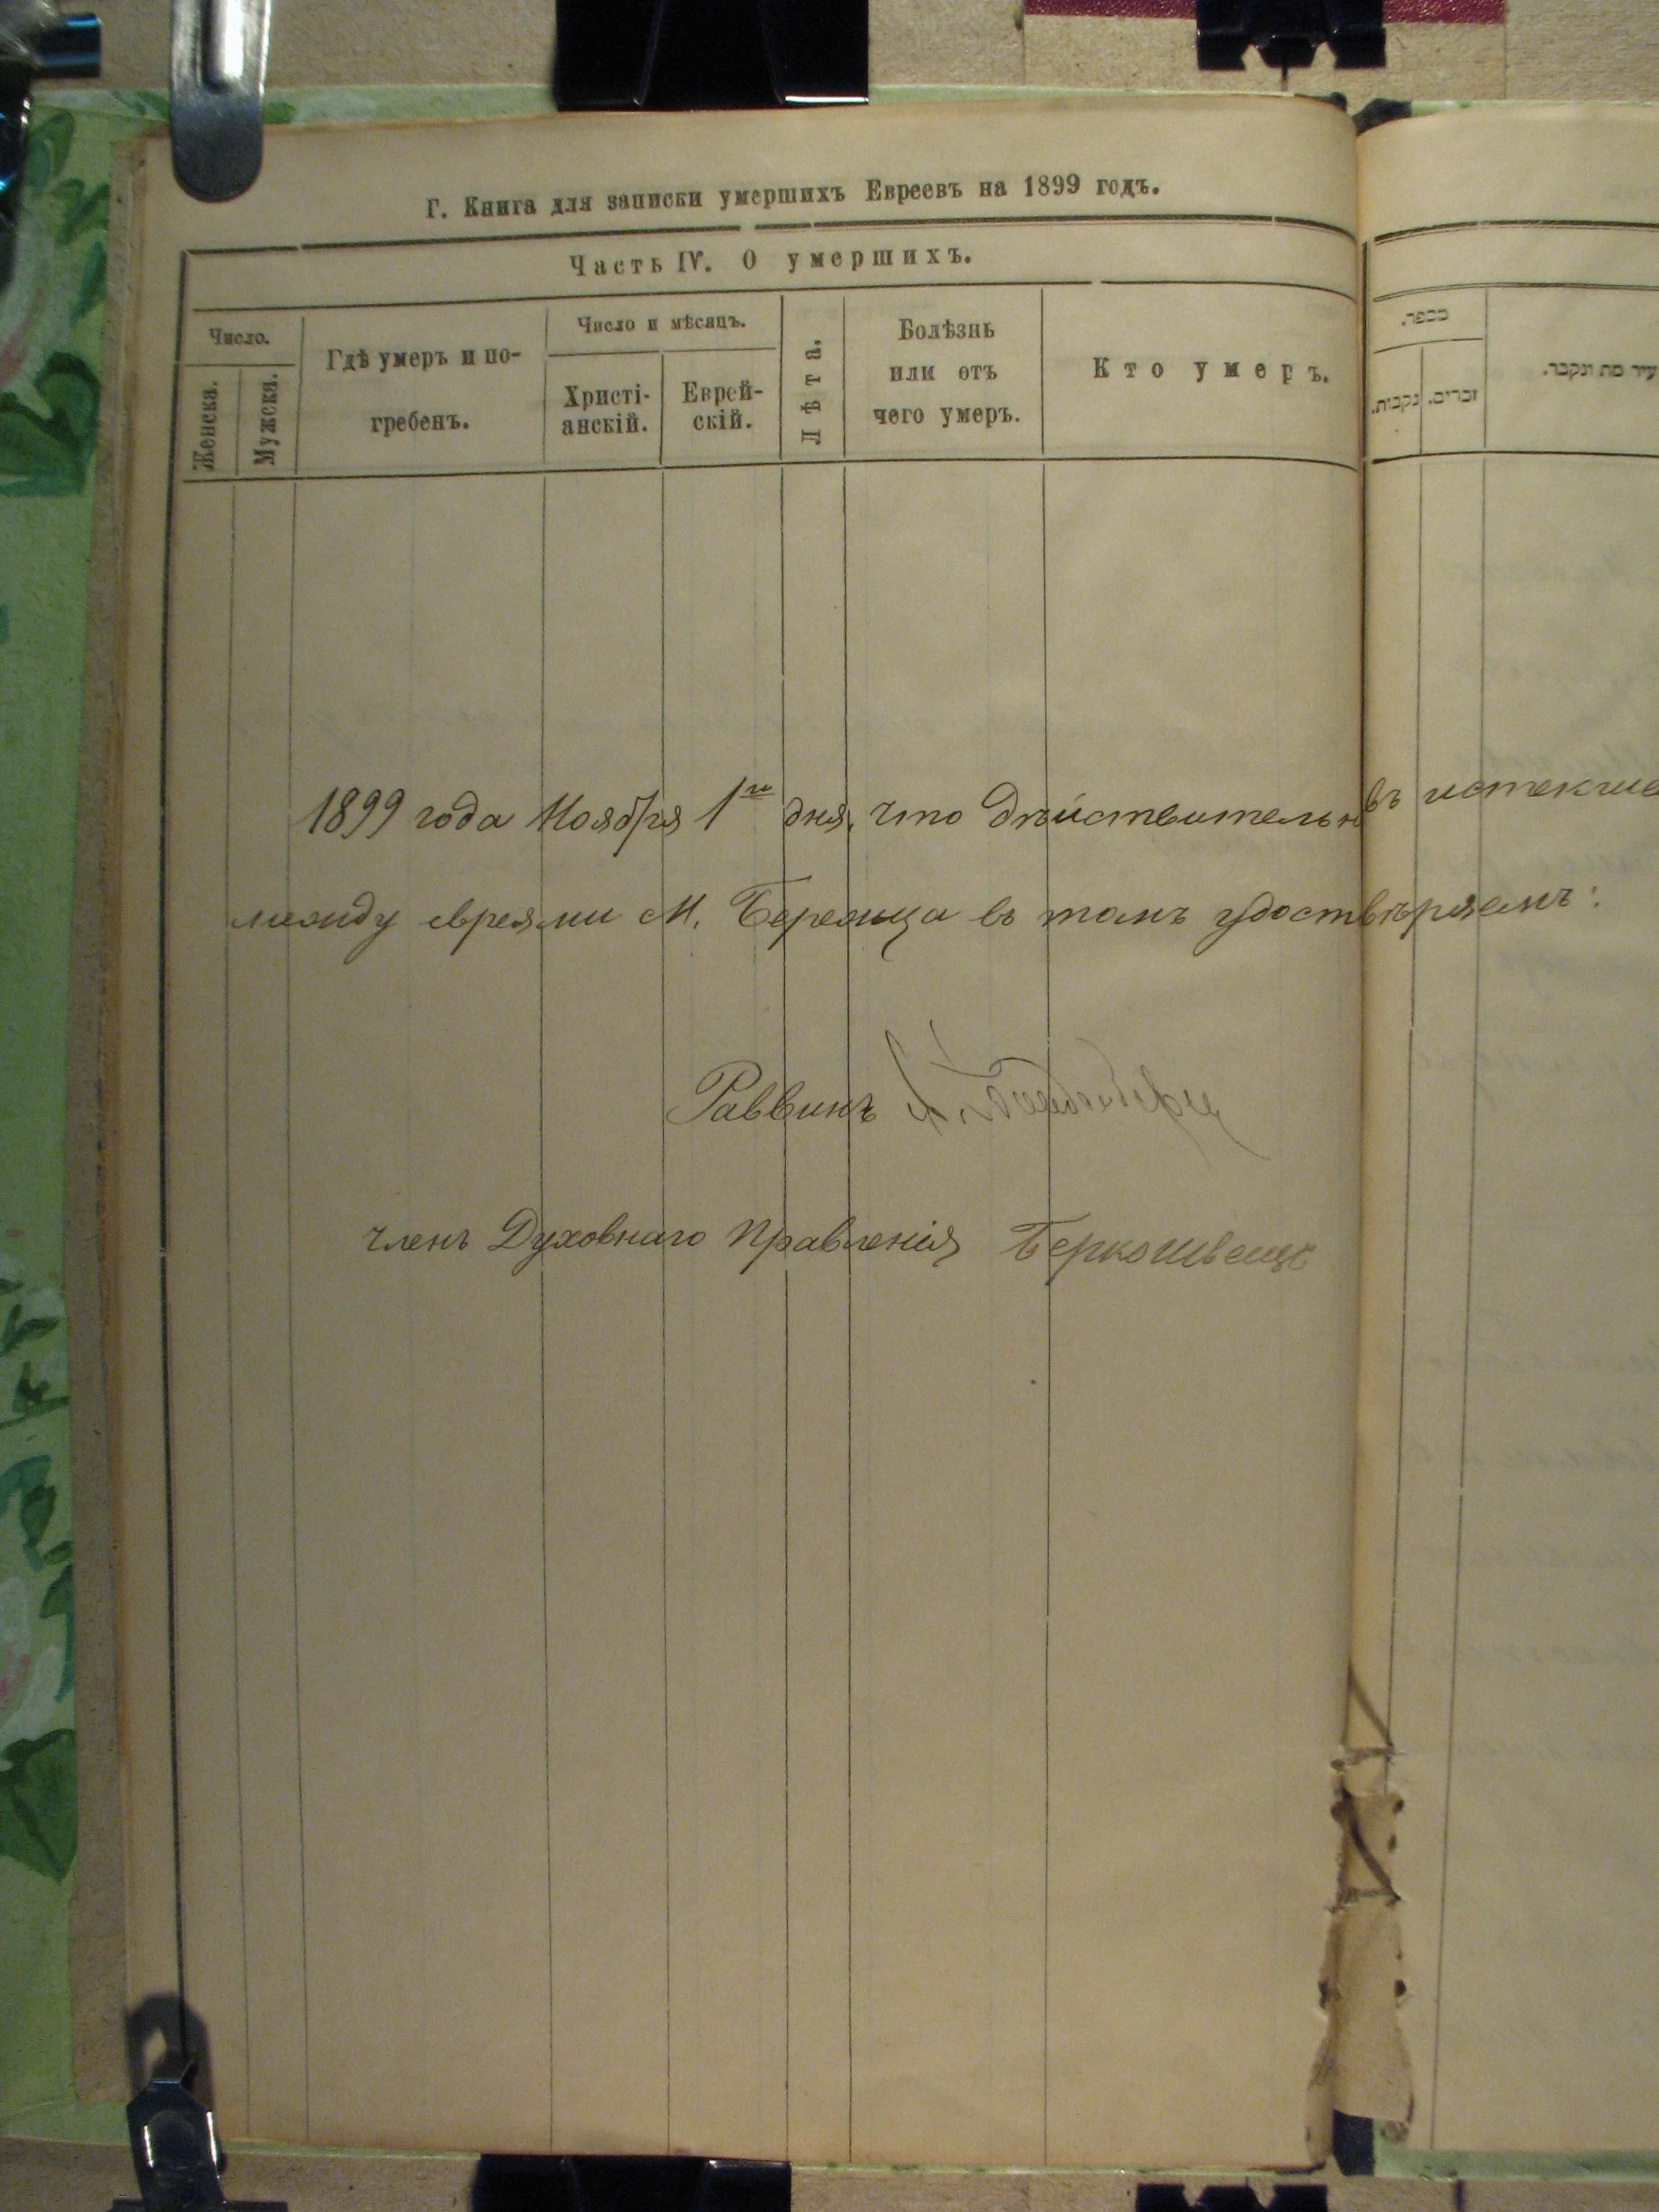 Г. Книга для записки умершихъ Евреевъ на 1899 годъ.
Часть IV. О умершихъ.
Число.
Женска.
Мужска.
Гдѣ умеръ и по-
гребенъ.
Число и мѣсяцъ.
Христі-
анскій.
Еврей-
скій.
Лѣта.
Болѣзнь
или отъ
чего умеръ.
Кто умеръ.
מספר.
זכרים.
נקבות.
עיר מת ונקבר.
1899 года Ноября 1го дня, что дѣйствительно въ истекше
между евреями М. Березца въ томъ удостовѣряемъ:
Раввинъ
членъ Духовнаго Правленія